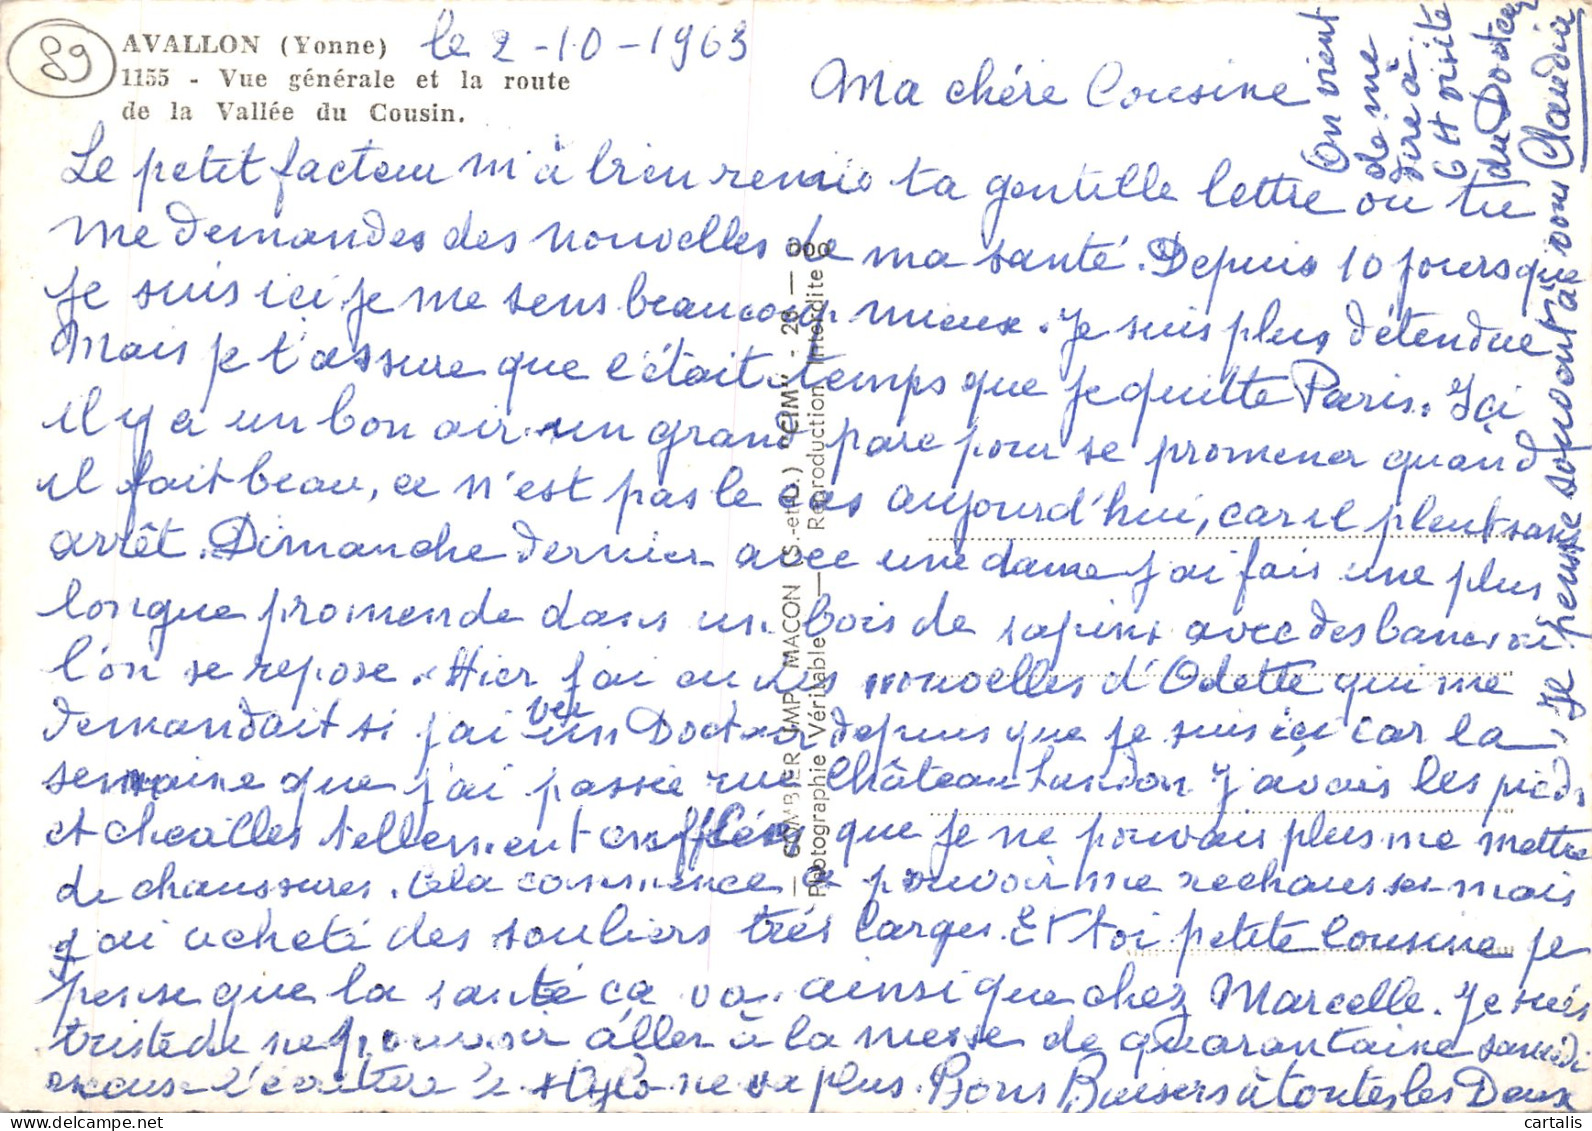 89
AVALLON (Yonne)
1155 - Vue générale et la route
de la Vallée du Cousin.
le 2-10-1963
Ma chére Cousine
Le petit facteur m'à bien remis ta gentille lettre ou tu
me demandes des nouvelles de ma santé. Depuis 10 jours que
je suis ici je me sens beaucoup mieux. Je suis plus détendue
Mais je t'assure que c'était temps que je quitte Paris. Ici
il y a un bon air un grand parc pour se promener quand
il fait beau, ce n'est pas le cas aujourd'hui, car il pleut sans
arrêt. Dimanche dernier avec une dame j'ai fais une plus
longue promende dans un bois de sapins avec des bancs où
l'on se repose. Hier j'ai eu des nouvelles d'Odette qui me
demandait si j'ai vu un Docteur depuis que je suis ici car la
semaine que j'ai passée rue Château Landon J'avais les pieds
et chevilles tellement enflées que je ne pouvais plus me mettre
de chaussures. Cela commence a pouvoir me rechausser mais
j'ai acheté des souliers trés larges. Et toi petite Cousine je
pense que la santé ça va ainsi que chez Marcelle. Je suis
triste de ne pouvoir aller à la messe de quarantaine samedi
le stylo ne va plus. Bons Baisers à toutes les Deux
Je pense souvent à vous Claudia
On vient
de me
dire à
6 H visite
du Docteur
— COMBIER IMP. MACON (S.-et-L.) "CIM" - 20 —
Photographie Véritable — Reproduction Interdite
cartalis.com